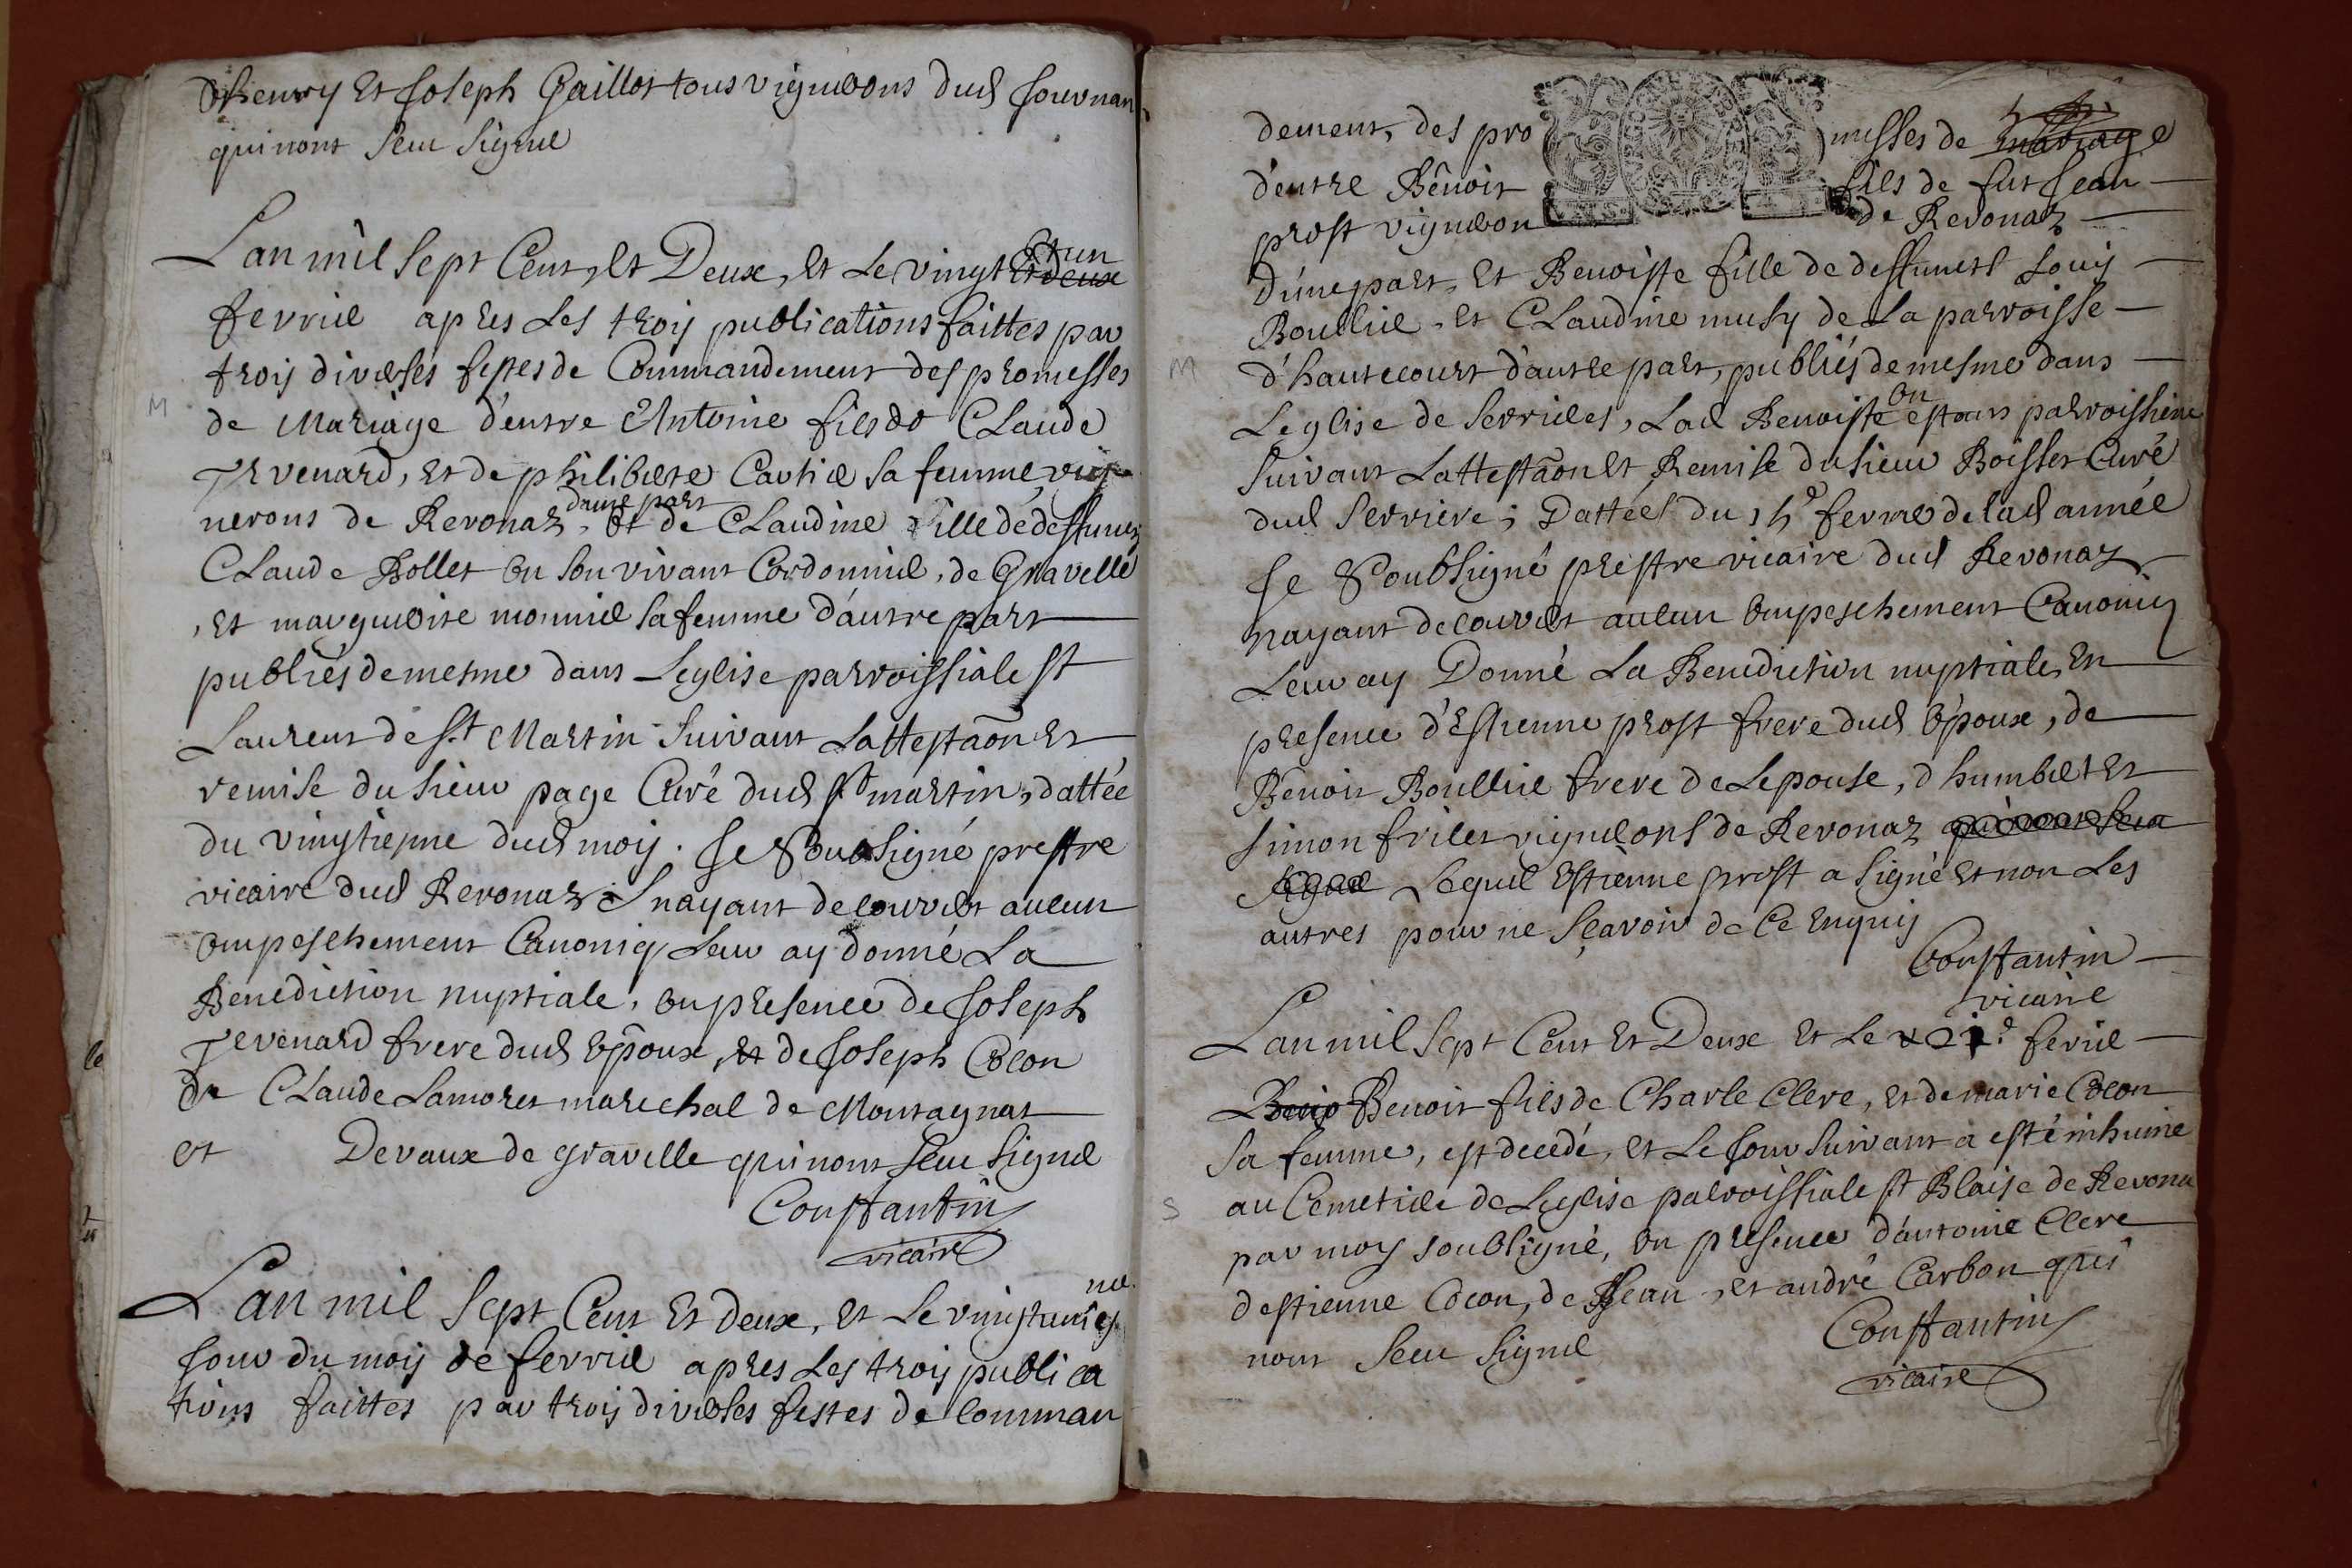 d'henry et Joseph Gaillot tous vignerons dud Journan
qui nont sceu signer
M
Lan mil sept Cent, et Deux, et Le vingt et un
fevrier apres Les trois publications faittes par
trois diverses festes de Commandement des promesses
de Mariage d'entre Antoine fils de Claude
Tevenard, et de philiberte Cartier sa femme, vig
nerons de Revonaz, d'une part et de Claudine fille de deffunct
Claude Bollet en son vivant Cordonnier, de Gravelle
, et marguerite monnier sa femme d'autre part
publiés de mesme dans Leglise parroissiale St
Laurent de St Martin suivant Lattestaon et
remise du sieur page Curé dud St martin, dattée
du vingtiesme dud mois. Je soubsigné prestre
vicaire dud Revonaz nayant decouvert aucun
empeschement Canoniq Leur ay donné La
Benediction nuptiale, en presence de Joseph
Tevenard frere dud Epoux, et de Joseph Cocon
de Claude Lamoret marechal de Montagnat
et Devaux de gravelle qui nont sceu signer
Constantin
vicaire
Lan mil sept Cent et deux, et Le vingtuniesme
Jour du mois de fevrier apres Les trois publica
tions faittes par trois diverses festes de comman
dement, des pro messes de mariage
d'entre Benoit fils de fut Jean
prost vigneron de Revonaz
d'une part, et Benoiste fille de deffunct Louis
Boullier, et Claudine musy de La parroisse
M
d'hautecourt d'autre part, publiés de mesme dans
Leglise de Serrieres, Lad Benoiste en estant parroissiene
suivant Lattestaon et Remise du sieur Boisset Curé
dud Serriere; Dattées du fevrier de lad année
Je Soubsigné prestre vicaire dud Revonaz
nayant decouvert aucun empeschement Canoniq
Leur ay Donné La Benediction nuptiale, en
presence d'Estienne prost frere dud Epoux, de
Benoit Boullier frere de Lepouse, d'humbert et
Simon frilet vignerons de Revonaz qui nont sceu
signer Lequel Estienne prost a signé et non Les
autres pour ne sçavoir de ce Enquis
Constantin
vicaire
Lan mil sept Cent et Deux et Le fevrier
Benoit fils de Charle Clere, et de marie Cocon
sa femme, est decedé, et Le Jour suivant a esté inhumé
S
au Cemetiere de Leglise parroissiale St Blaise de Revona
par moy soubsigné, en presence d'antoine Clere
d'estienne Cocon, de Jean, et andré Carbon qui
nont sceu signer
Constantin
vicaire